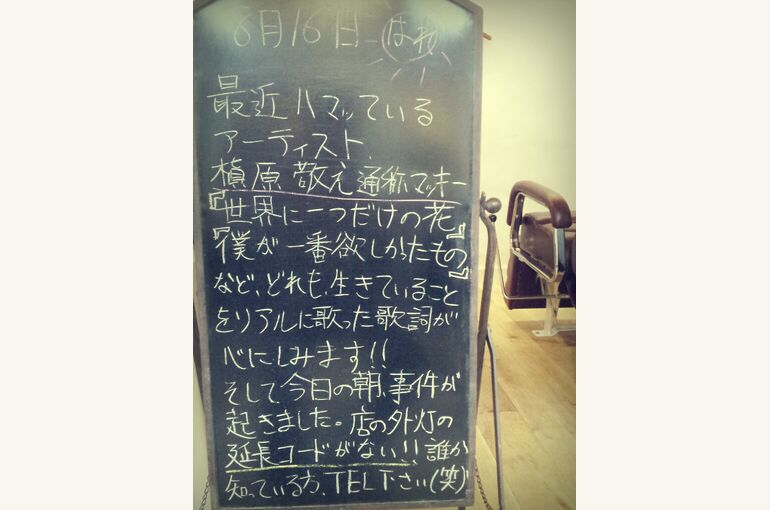 6月16日 はれ
最近ハマッている
アーティスト、
槇原敬之通称マッキー
『世界に一つだけの花』
『僕が一番欲しかったもの』
など、どれも、生きていること
をリアルに歌った歌詞が
心にしみます!!
そして、今日の朝、事件が
起きました。店の外灯の
延長コードがない!!誰か
知っている方、TEL下さい(笑)